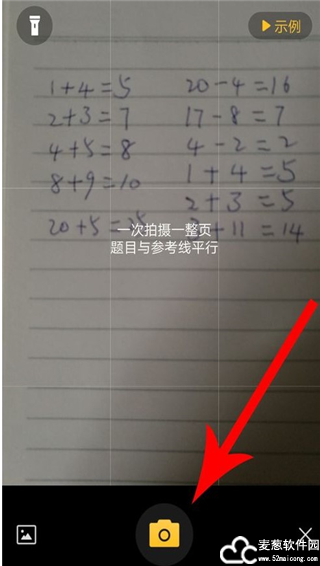 示例
1+4=5
2+3=7
4+5=8
8+9=10
20+5=25
20-4=16
17-8=7
4-2=2
1+4=5
2+3=5
+11=14
一次拍摄一整页
题目与参考线平行
麦葱软件园
www.52maicong.com